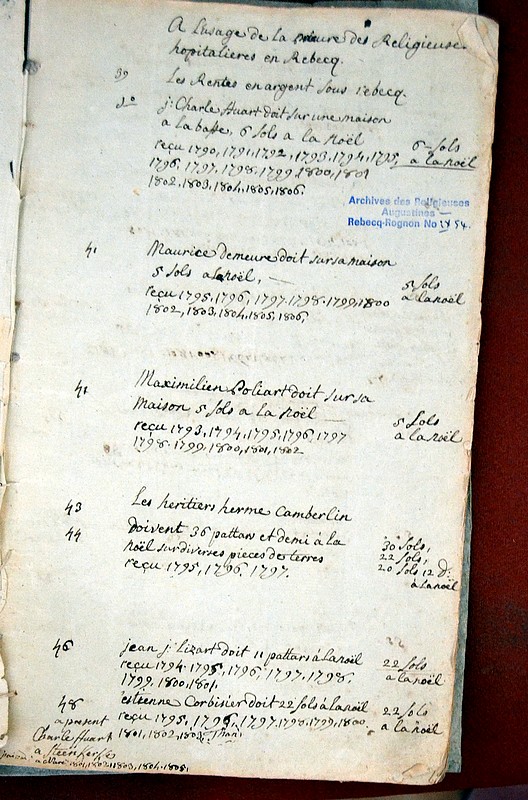 A Lusage de la prieure des Religieuse
hopitalieres en Rebecq.
39
Les Rentes en argent sous rebecq.
j: Charle huart doit sur une maison
a la basse, 6 sols a la Noël
reçu 1790, 1791, 1792, 1793, 1794, 1795,
1796, 1797, 1798, 1799, 1800, 1801
1802, 1803, 1804, 1805, 1806.
6 sols
a la noël
Archives des Religieuses
Augustines
Rebecq-Rognon No 54.
41
Maurice demeure doit sur sa maison
5 sols a la noël,
reçu 1795, 1796, 1797, 1798, 1799, 1800
1802, 1803, 1804, 1805, 1806,
5 sols
a la noël
41
Maximilien Poliart doit sur sa
maison 5 sols a la noël
reçu 1793, 1794, 1795, 1796, 1797
1798, 1799, 1800, 1801, 1802
5 sols
a la noël
43
Les heritiers herme Camberlin
44
doivent 36 pattars et demi à la
noël sur diverses pieces des terres
reçu 1795, 1796, 1797.
30 sols,
22 sols,
20 sols 12 d:
a la noël
46
jean j: Lizart doit 11 pattars à la noël
reçu 1794, 1795, 1796, 1797, 1798
1799, 1800, 1801
22 sols
a la noël
48
etienne Corbisier doit 22 sols à la noël
reçu 1795, 1796, 1797, 1798, 1799, 1800
1801, 1802, 1803
22 sols
a la noël
a present
Charle huart
a Steenkerke
1801, 1802, 1803, 1804, 1805,